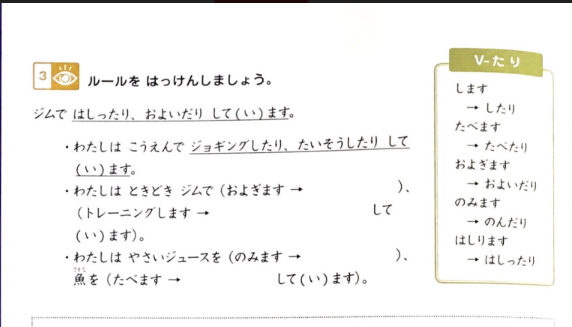 3 ルールを はっけんしましょう。
ジムで はしったり、およいだり して(い)ます。
・わたしは こうえんで ジョギングしたり、たいそうしたり して
(い)ます。
・わたしは ときどき ジムで (およぎます → )、
(トレーニングします → して
(い)ます)。
・わたしは やさいジュースを (のみます → )、
さかな
魚を (たべます → して(い)ます)。
V-たり
します
→ したり
たべます
→ たべたり
およぎます
→ およいだり
のみます
→ のんだり
はしります
→ はしったり